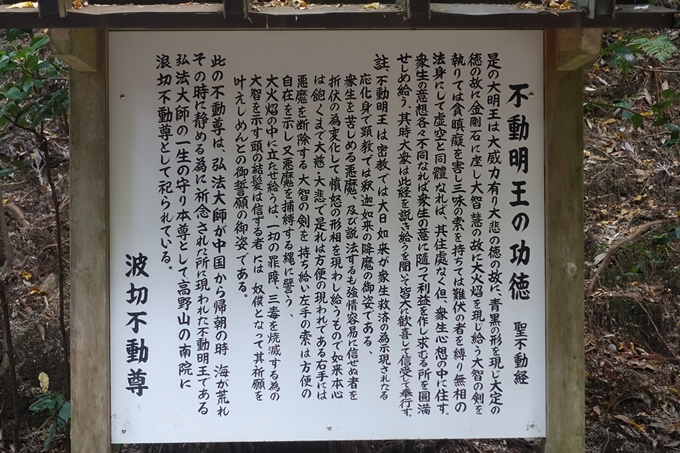 不動明王の功徳 聖不動経
是の大明王は大威力有り大悲の徳の故に、青黒の形を現じ大定の
徳の故に金剛石に座し大智慧の故に大火焰を現じ給う大智の剣を
執りては貪瞋癡を害し三昧の索を持ちては難伏の者を縛り無相の
法身にして虚空と同體なれば、其住處なく但、衆生心想の中に住す、
衆生の意想各々不同なれば衆生の意に随って利益を作し求むる所を圓満
せしめ給う、其時大衆は此経を説き給うを聞いて皆大に歓喜して信受して奉行す。
註 不動明王は密教では大日如来が衆生救済の為示現されたる
応化身で顕教では釈迦如来の降魔の御姿である、
衆生を苦しめる悪魔、及び説法するも強情容易に信せぬ者を
折伏の為変化して憤怒の形相を現わし給うもので如来本心
は飽くまで大慈・大悲で是れは方便の現われである右手には
悪魔を断除する大智の剣を持ち給い左手の索は方便の
自在を示し又悪魔を捕縛する縄に譬う、
大火焰の中に立たせ給うは、一切の罪障、三毒を焼滅する為の
大智を示す頭の結髪は信ずる者には奴僕となって其祈願を
叶えしめんとの御誓願の御姿である。
此の不動尊は、弘法大師が中国から帰朝の時 海が荒れ
その時に静める為に祈念された所に現われた不動明王である
弘法大師の一生の守り本尊として高野山の南院に
浪切不動尊として祀られている。
波切不動尊